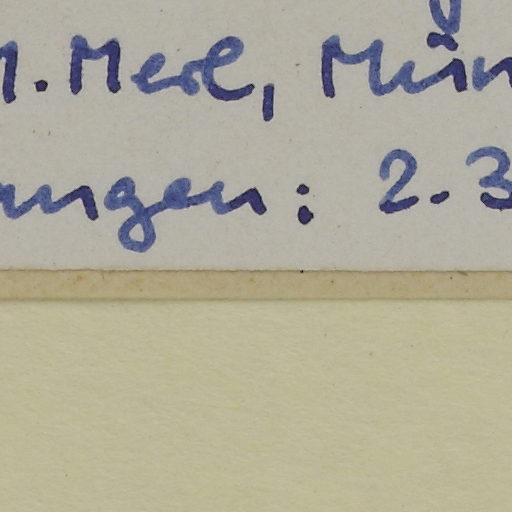 M. Merl, Mün
ungen: 2. 3